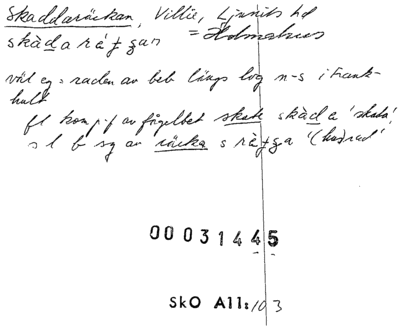 Skaddaräckan, Villie, Ljunits hd
skàdaráʒgan = Holmahus
väl eg = raden av beb längs väg n-s i Frank-
hult
fl komp-f av fågelbet skata skàda 'skata'
s l b sg av räcka s ráʒga '(ho)rad'
00031445
SkO All:103